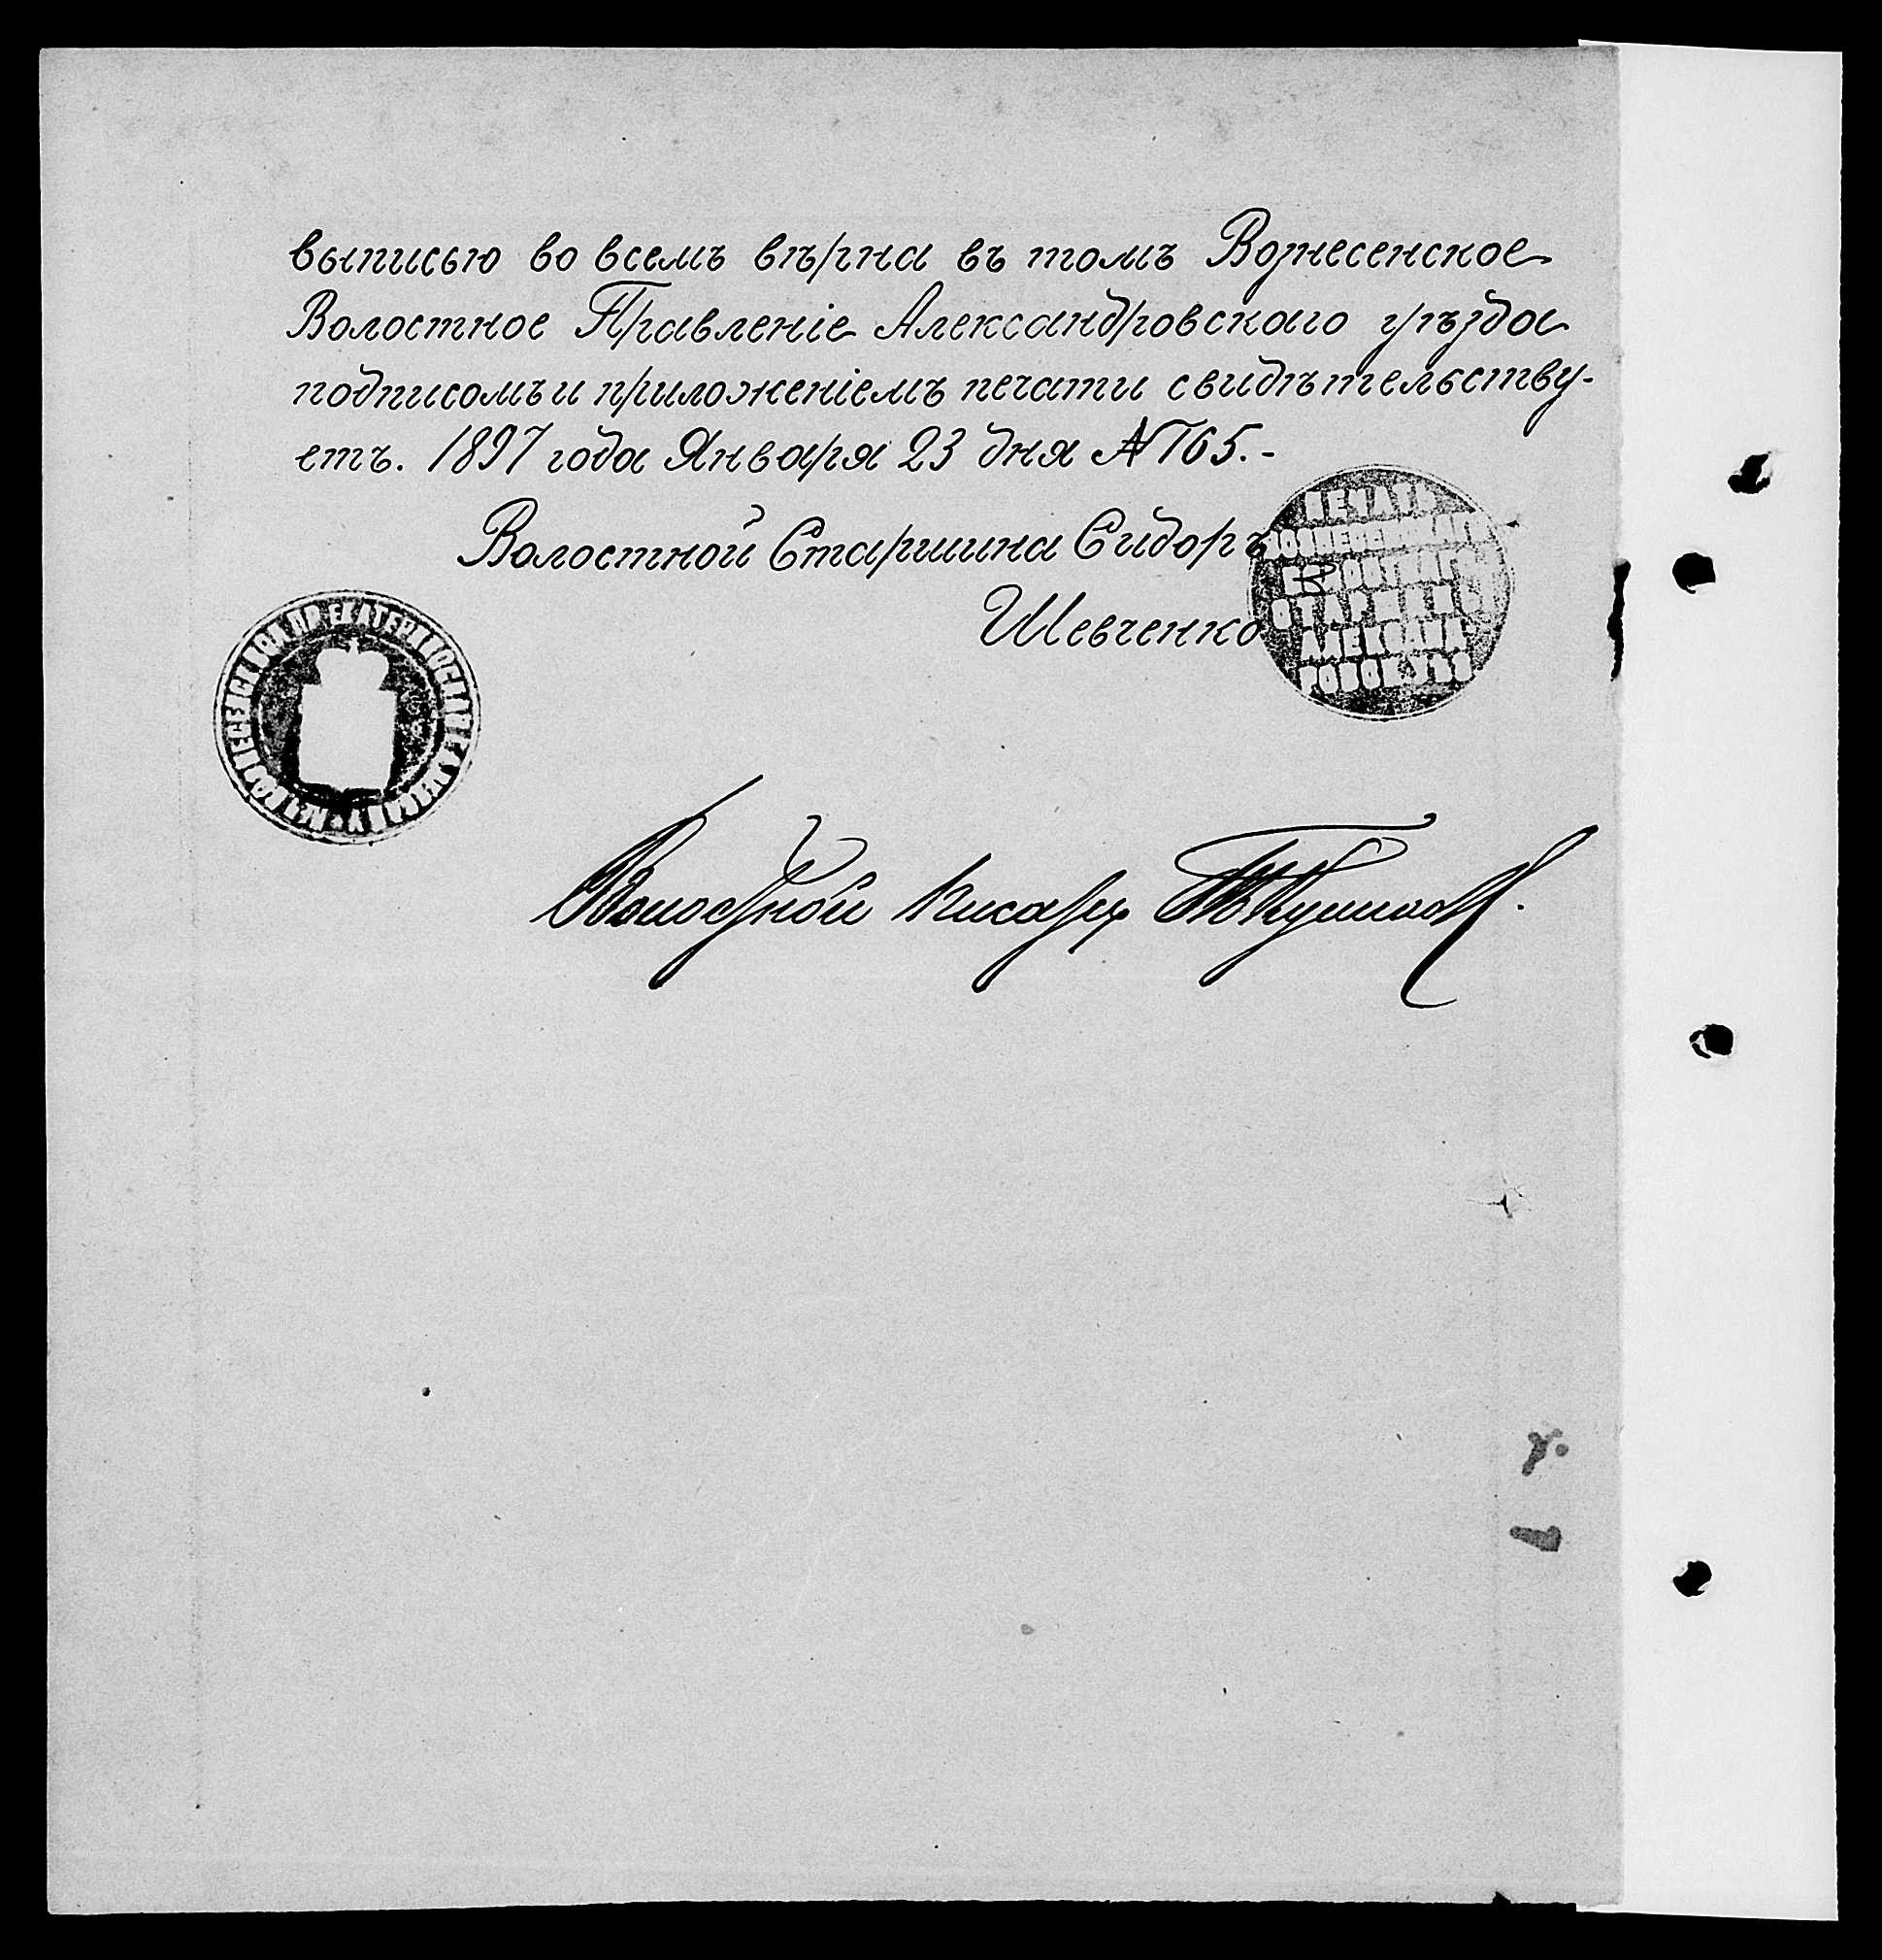 выписью во всемъ вѣрна въ томъ Вознесенское
Волостное Правленіе Александровскаго уѣзда
подписомъ и приложеніемъ печати свидѣтельству-
етъ. 1897 года Января 23 дня № 165.-
Волостной Старшина Сидоръ
Шевченко
ПЕЧАТЬ
ВОЗНЕСЕНСКАГО
ВОЛОСТНАГО
СТАРШИНЫ
АЛЕКСАНД
РОВСК. УѢЗ
Волостной писарь